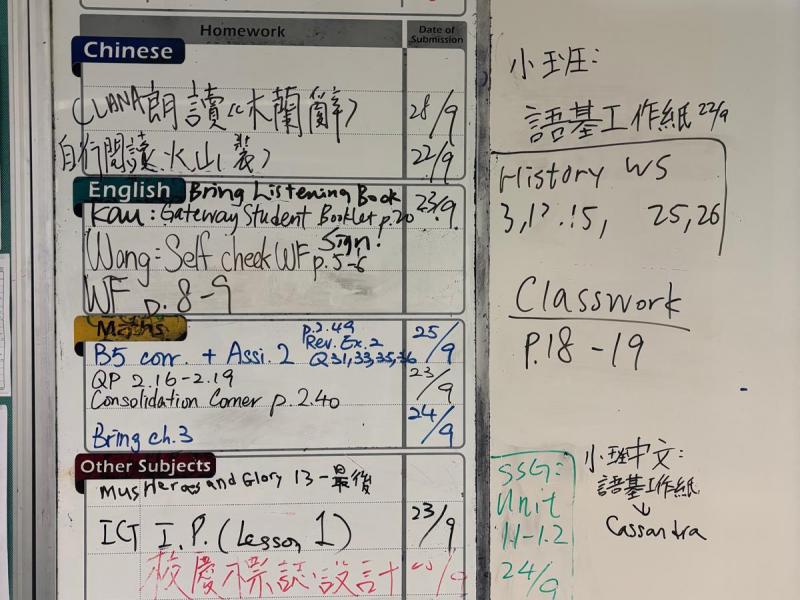 Homework
Date of Submission
Chinese
CLANA朗讀《木蘭辭》 28/9
自行閱讀 火山(裝) 22/9
English Bring Listening Book
Kau: Gateway Student Booklet p.20 23/9
Sign!
Wong: Self check WF p.5-6
WF p.8-9
Maths
p.2.49
Rev. Ex.2
B5 corr. + Assi.2 Q31,33,35,36 25/9
QP 2.16-2.19 23/9
Consolidation Corner p.2.40
Bring ch.3 24/9
Other Subjects
Mus Heroes and Glory 13-最後
ICT I.P. (Lesson 1) 23/9
校慶標誌設計
小班:
語基工作紙 22/9
History WS
25, 26
Classwork
P.18-19
SSG:
Unit
1.1-1.2
24/9
小班中文:
語基工作紙
↓
Cassandra